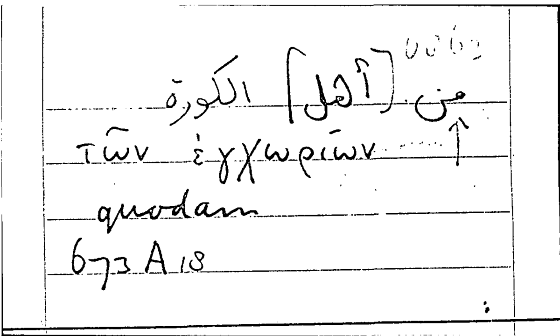 0063
من [أهل] الكورة
τῶν ἐγχωρίων ↑
quodam
673 A 18